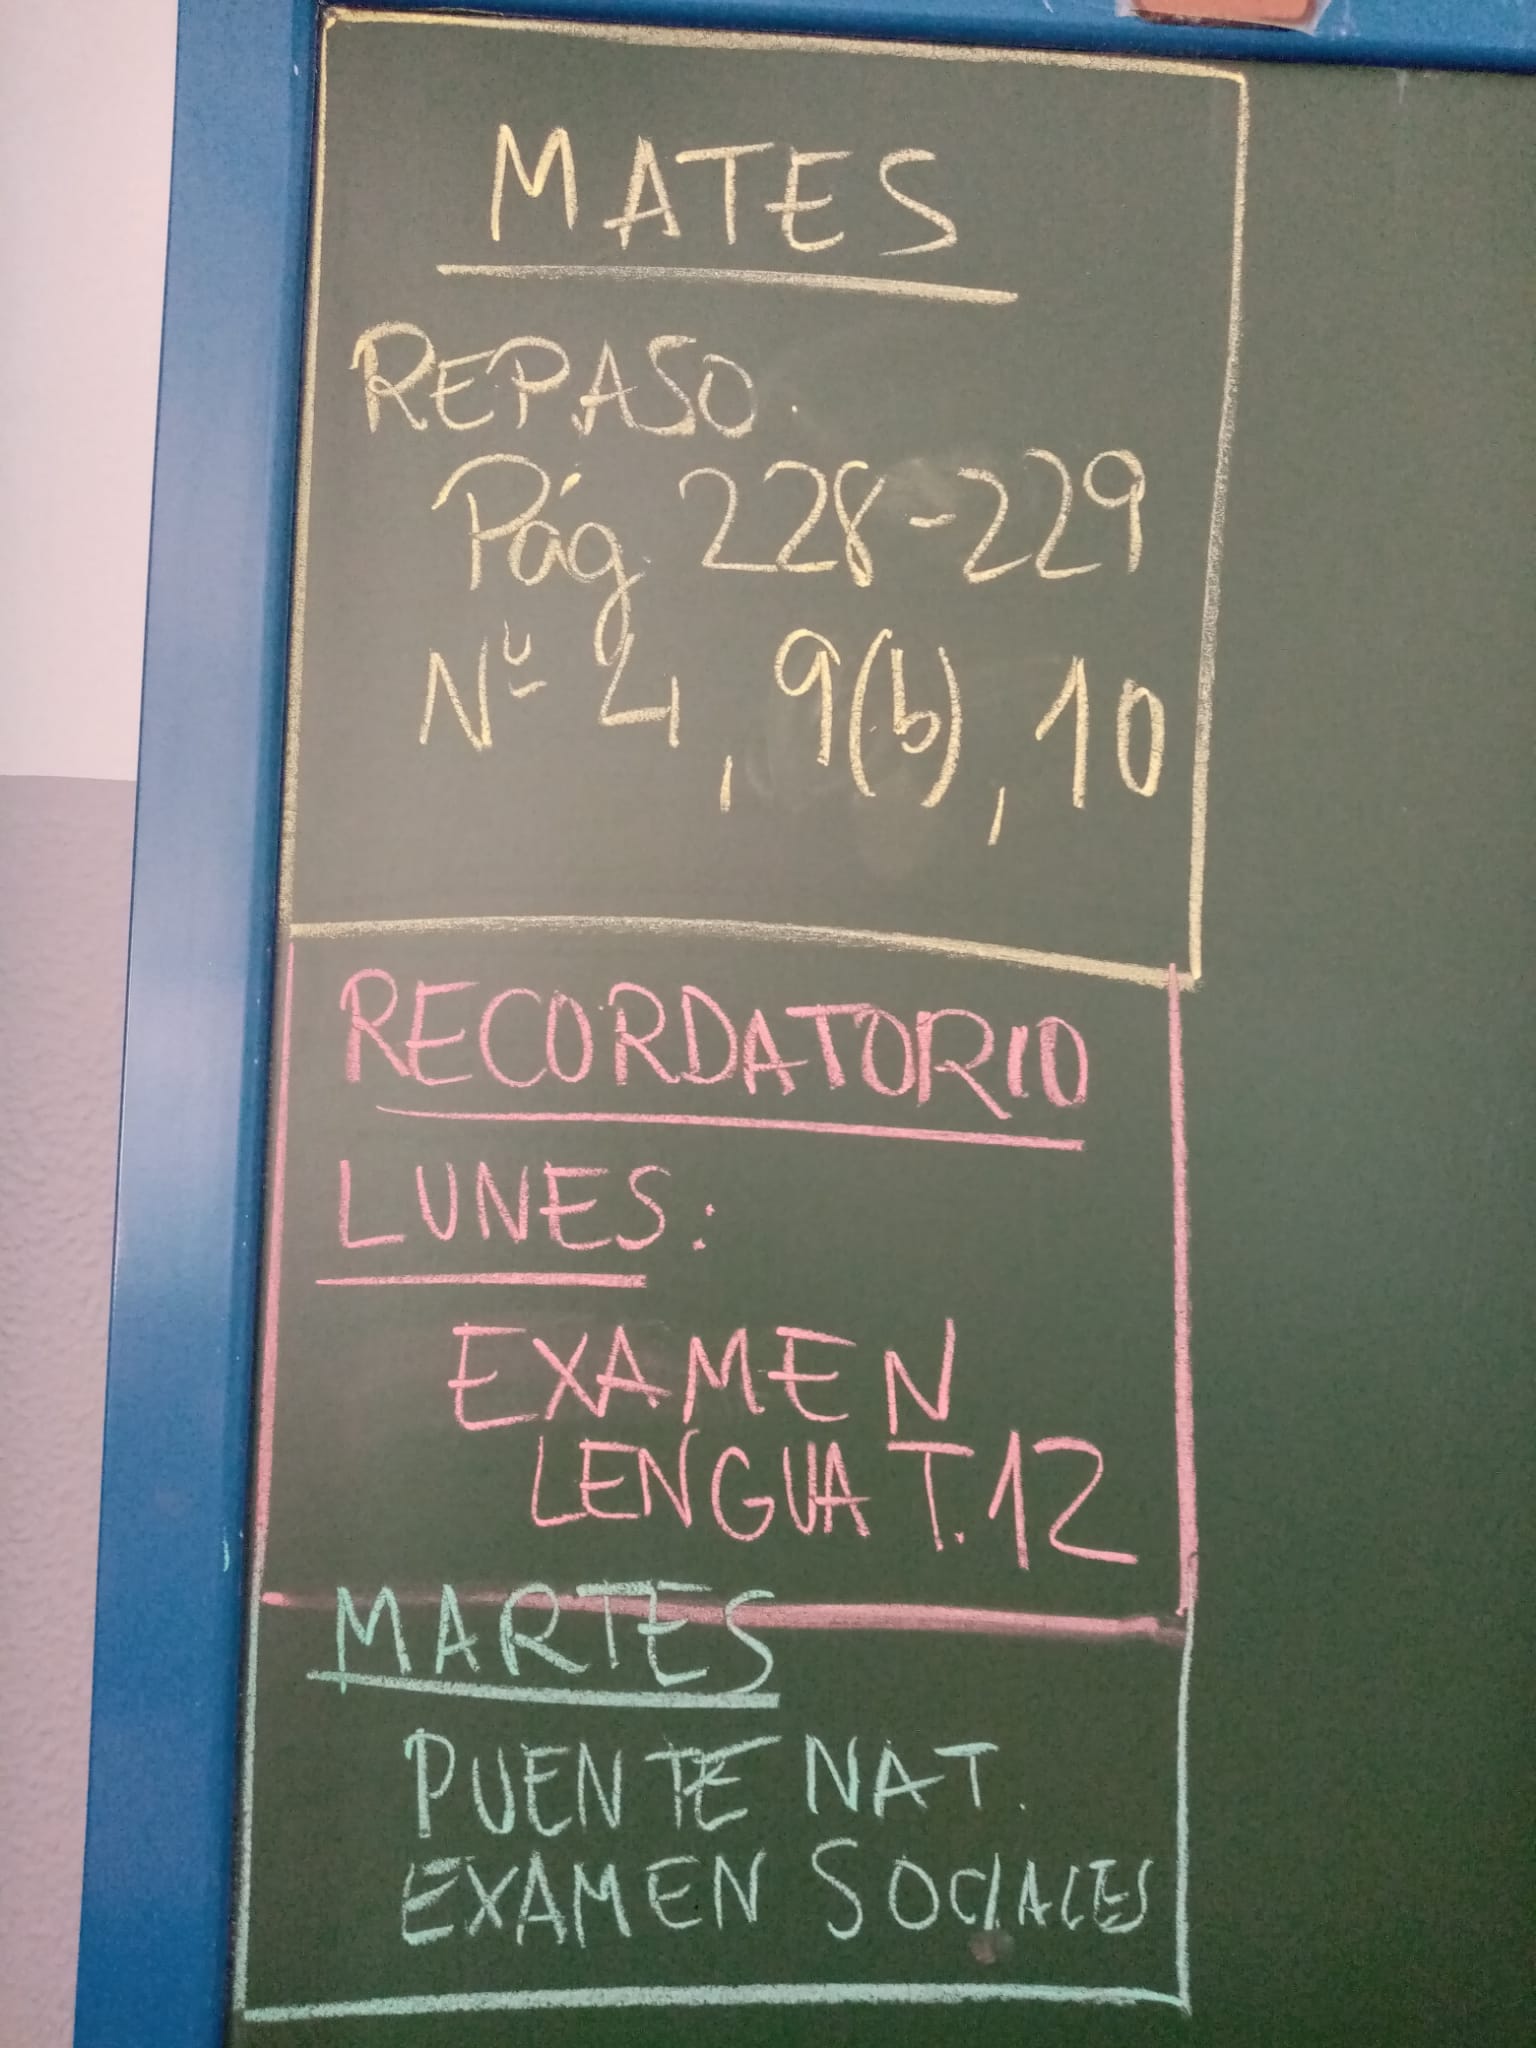 MATES
REPASO.
Pág. 228-229
Nº 4, 9(b), 10
RECORDATORIO
LUNES:
EXAMEN
LENGUA T.12
MARTES
PUENTE NAT.
EXAMEN SOCIALES